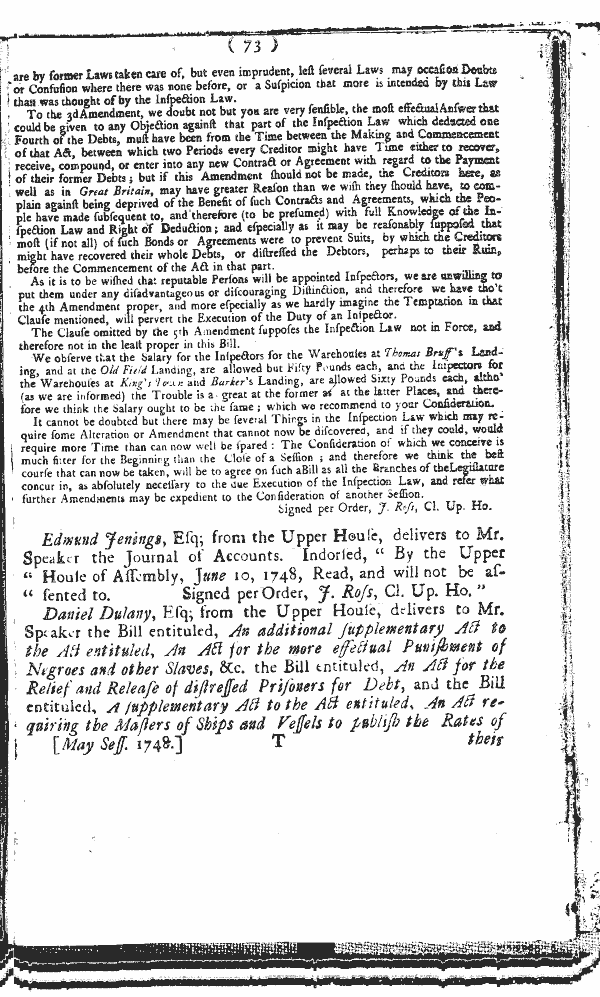 ( 73 )
are by former Laws taken care of, but even imprudent, leſt ſeveral Laws may occaſion Doubts
or Confuſion where there was none before, or a Suſpicion that more is intended by this Law
than was thought of by the Inſpection Law.
To the 3d Amendment, we doubt not but you are very ſenſible, the moſt effectual Anſwer that
could be given to any Objection againſt that part of the Inſpection Law which deducted one
Fourth of the Debts, muſt have been from the Time between the Making and Commencement
of that Act, between which two Periods every Creditor might have Time either to recover,
receive, compound, or enter into any new Contract or Agreement with regard to the Payment
of their former Debts ; but if this Amendment ſhould not be made, the Creditors here, as
well as in Great Britain, may have greater Reaſon than we wiſh they ſhould have, to com-
plain againſt being deprived of the Benefit of ſuch Contracts and Agreements, which the Peo-
ple have made ſubſequent to, and therefore (to be preſumed) with full Knowledge of the In-
ſpection Law and Right of Deduction ; and eſpecially as it may be reaſonably ſuppoſed that
moſt (if not all) of ſuch Bonds or Agreements were to prevent Suits, by which the Creditors
might have recovered their whole Debts, or diſtreſſed the Debtors, perhaps to their Ruin,
before the Commencement of the Act in that part.
As it is to be wiſhed that reputable Perſons will be appointed Inſpectors, we are unwilling to
put them under any diſadvantageous or diſcouraging Diſtinction, and therefore we have tho't
the 4th Amendment proper, and more eſpecially as we hardly imagine the Temptation in that
Clauſe mentioned, will pervert the Execution of the Duty of an Inſpector.
The Clauſe omitted by the 5th Amendment ſuppoſes the Inſpection Law not in Force, and
therefore not in the leaſt proper in this Bill.
We obſerve that the Salary for the Inſpectors for the Warehouſes at Thomas Bruff's Land-
ing, and at the Old Field Landing, are allowed but Fifty Pounds each, and the Inſpectors for
the Warehouſes at King's Town and Barker's Landing, are allowed Sixty Pounds each, altho'
(as we are informed) the Trouble is as great at the former as at the latter Places, and there-
fore we think the Salary ought to be the ſame ; which we recommend to your Conſideration.
It cannot be doubted but there may be ſeveral Things in the Inſpection Law which may re-
quire ſome Alteration or Amendment that cannot now be diſcovered, and if they could, would
require more Time than can now well be ſpared : The Conſideration of which we conceive is
much fitter for the Beginning than the Cloſe of a Seſſion ; and therefore we think the beſt
courſe that can now be taken, will be to agree on ſuch a Bill as all the Branches of the Legiſlature
concur in, as abſolutely neceſſary to the due Execution of the Inſpection Law, and refer what
further Amendments may be expedient to the Conſideration of another Seſſion.
Signed per Order, J. Roſs, Cl. Up. Ho.
Edmund Jenings, Eſq; from the Upper Houſe, delivers to Mr.
Speaker the Journal of Accounts. Indorſed, “ By the Upper
“ Houſe of Aſſembly, June 10, 1748, Read, and will not be aſ-
“ ſented to. Signed per Order, J. Roſs, Cl. Up. Ho. ”
Daniel Dulany, Eſq; from the Upper Houſe, delivers to Mr.
Speaker the Bill entituled, An additional ſupplementary Act to
the Act entituled, An Act for the more effectual Puniſhment of
Negroes and other Slaves, &c. the Bill entituled, An Act for the
Relief and Releaſe of diſtreſſed Priſoners for Debt, and the Bill
entituled, A ſupplementary Act to the Act entituled, An Act re-
quiring the Maſters of Ships and Veſſels to publiſh the Rates of
[May Seſſ. 1748.] T their